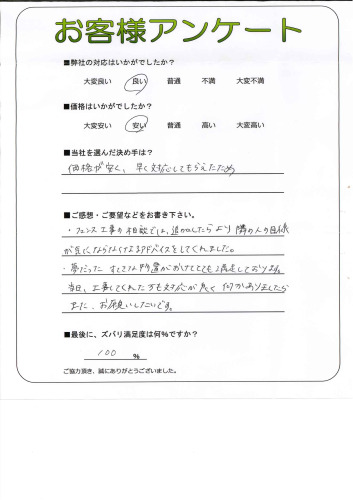 お客様アンケート
■弊社の対応はいかがでしたか？
大変良い 良い 普通 不満 大変不満
■価格はいかがでしたか？
大変安い 安い 普通 高い 大変高い
■当社を選んだ決め手は？
価格が安く、早く対応してもらえたため
■ご感想・ご要望などをお書き下さい。
・フェンス工事の相談では、追加したらより隣の人の目線
が気にならなくなるアドバイスをしてくれました。
・夢だった すてきな物置がおけてとても満足しております。
当日、工事してくれた方も対応が良く 何かありましたら
また、お願いしたいです。
■最後に、ズバリ満足度は何％ですか？
100 ％
ご協力頂き、誠にありがとうございました。